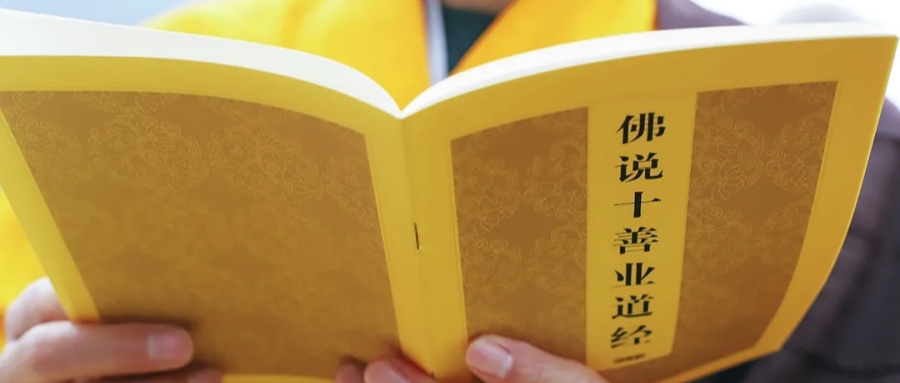 佛说十善业道经